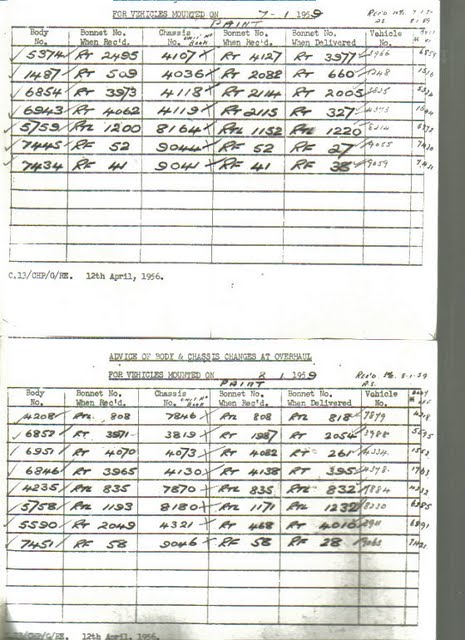 FOR VEHICLES MOUNTED ON 7-1 1959
PAINT
Body No. Bonnet No. When Rec'd. Chassis No. Bonnet No. When Rec'd. Bonnet No. When Delivered Vehicle No.
5374 RT 2495 4107 RT 4127 RT 3977 3966
1487 RT 509 4036 RT 2088 RT 660
6854 RT 3973 4118 RT 2114 RT 2005
6943 RT 4062 4119 RT 2115 RT 327
5759 RTL 1200 8164 RTL 1152 RTL 1220
7445 RF 52 9044 RF 52 RF 27 9055
7434 RF 41 9041 RF 41 RF 38 9059
C.13/CHP/G/RE. 12th April, 1956.
ADVICE OF BODY & CHASSIS CHANGES AT OVERHAUL
FOR VEHICLES MOUNTED ON 8 1 1959
PAINT
Body No. Bonnet No. When Rec'd. Chassis No. Bonnet No. When Rec'd. Bonnet No. When Delivered Vehicle No.
4208 RTL 808 7846 RTL 808 RTL 818 7879
6852 RT 3971 3819 RT 1987 RT 2054 3988
6951 RT 4070 4073 RT 4082 RT 261 4334
6846 RT 3965 4130 RT 4138 RT 395
4235 RTL 835 7870 RTL 835 RTL 832 7884
5758 RTL 1193 8180 RTL 1171 RTL 1232 8230
5590 RT 2049 4321 RT 468 RT 4010
7451 RF 58 9046 RF 58 RF 28 9063
12th April, 1956.